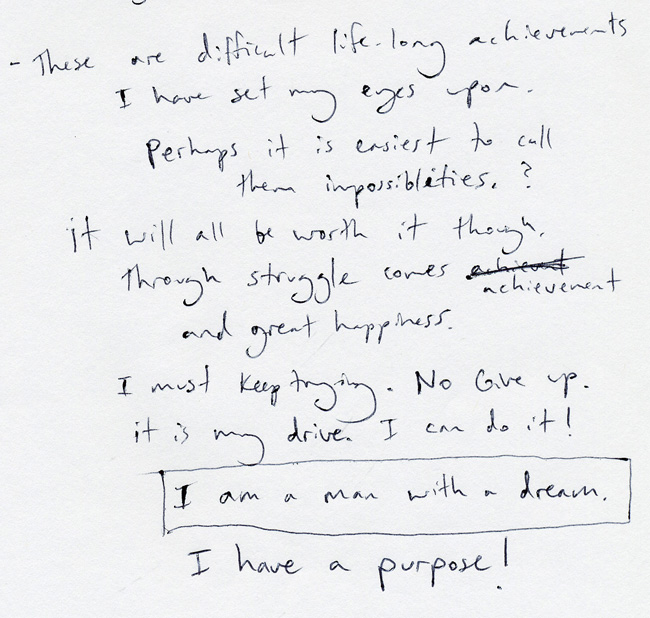 - These are difficult life-long achievements
I have set my eyes upon.
Perhaps it is easiest to call
them impossibleties. ?
it will all be worth it though.
Through struggle comes achievent
achievement
and great happiness.
I must keep trying. No Give up.
it is my drive. I can do it!
I am a man with a dream.
I have a purpose!